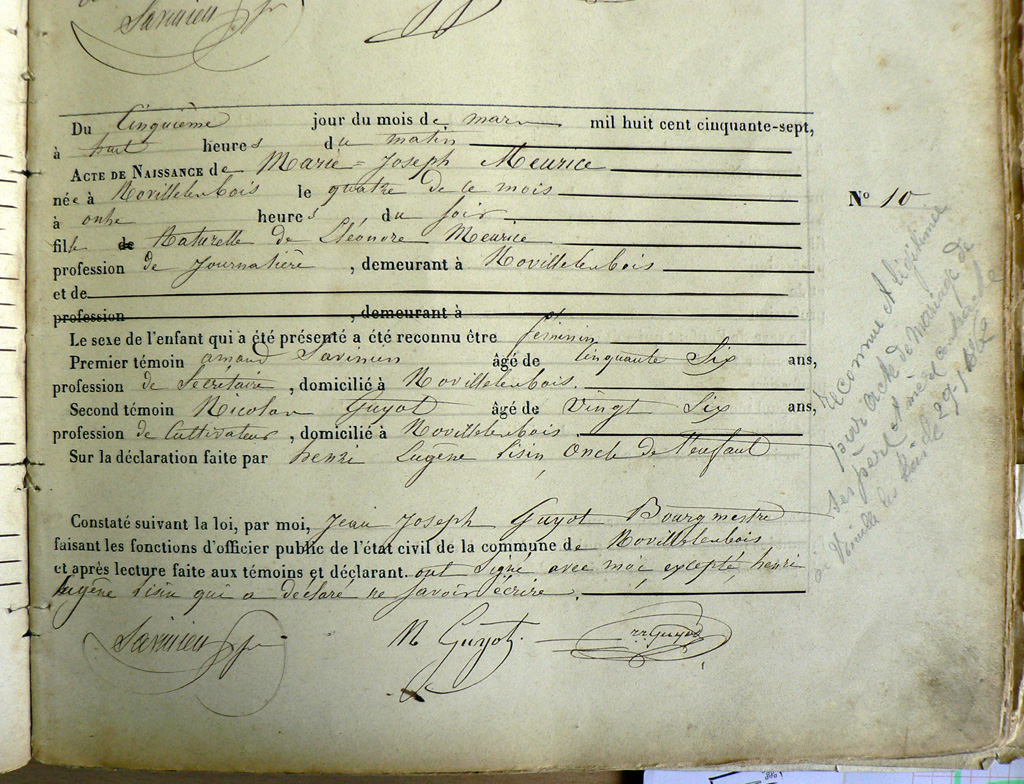 Savinien
Du Cinquième jour du mois de mars mil huit cent cinquante-sept,
à huit heures du matin
ACTE DE NAISSANCE de Marie-Joseph Meurice
née à Novillelenbois le quatre de ce mois
à onhe heures du soir.
fille de Naturelle de Eléonore Meurice
profession de Journalière, demeurant à Novillelenbois
et de
profession , demeurant à
Le sexe de l'enfant qui a été présenté a été reconnu être féminin
Premier témoin amand Savinien âgé de Cinquante Six ans,
profession de Secrétaire, domicilié à Novillelenbois.
Second témoin Nicolas Guyot âgé de Vingt Six ans,
profession de Cultivateur, domicilié à Novillelenbois.
Sur la déclaration faite par henri Eugène Sisin Oncle de l'enfant
Constaté suivant la loi, par moi, Jean Joseph Guyot Bourgmestre
faisant les fonctions d'officier public de l'état civil de la commune de Novillelenbois
et après lecture faite aux témoins et déclarant. ont signé avec moi excepté henri
Eugène Sisin qui a déclaré ne savoir écrire.
Savinien
N Guyot
Guyot
N° 10
Reconnue et légitimée
par acte de Mariage de
ses père et mère contracté
à Noville les bois le 29-1-1862